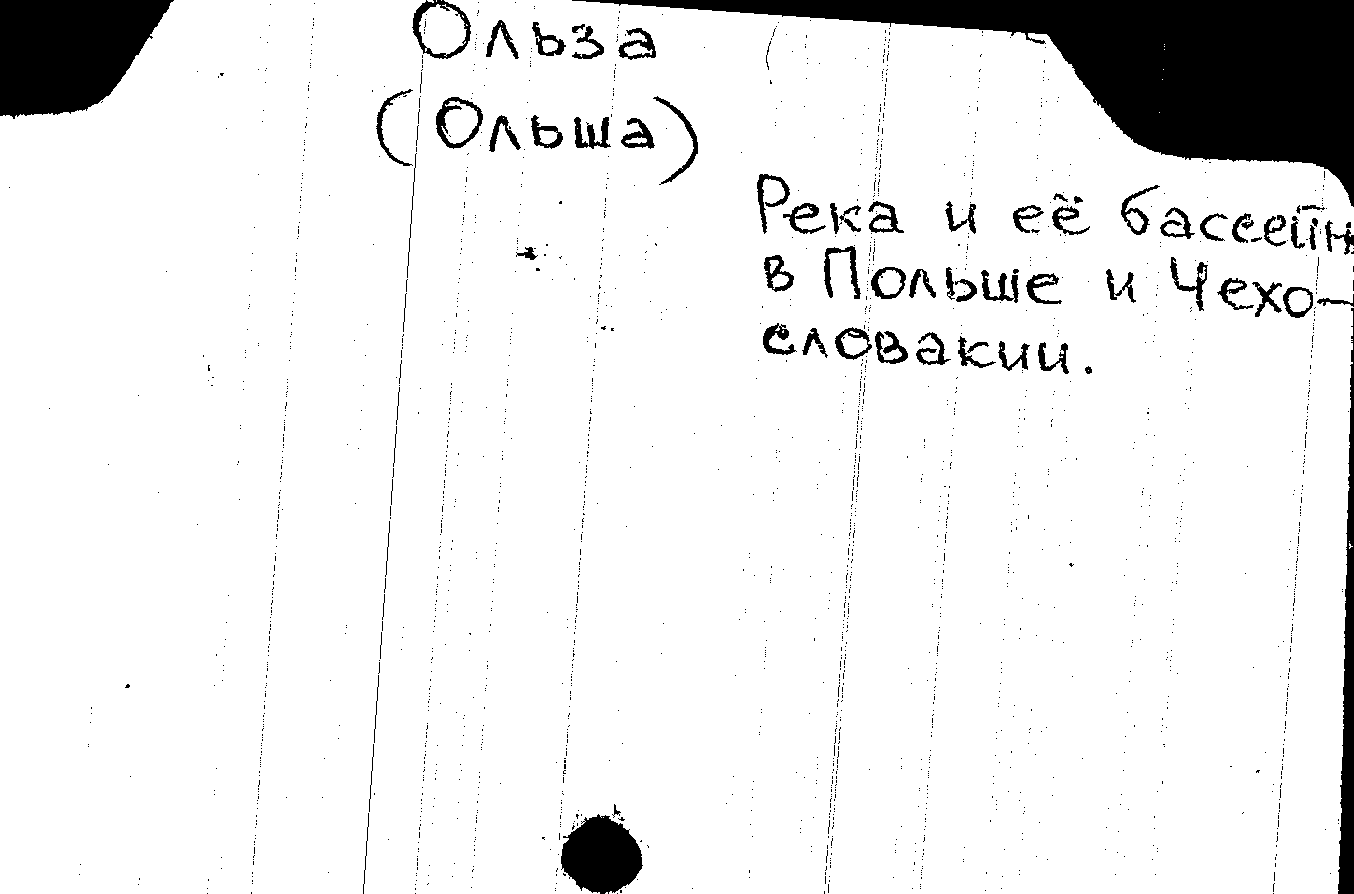 Ользa
(Ольша)
Река и её бассейн
в Польше и Чехо-
словакии.